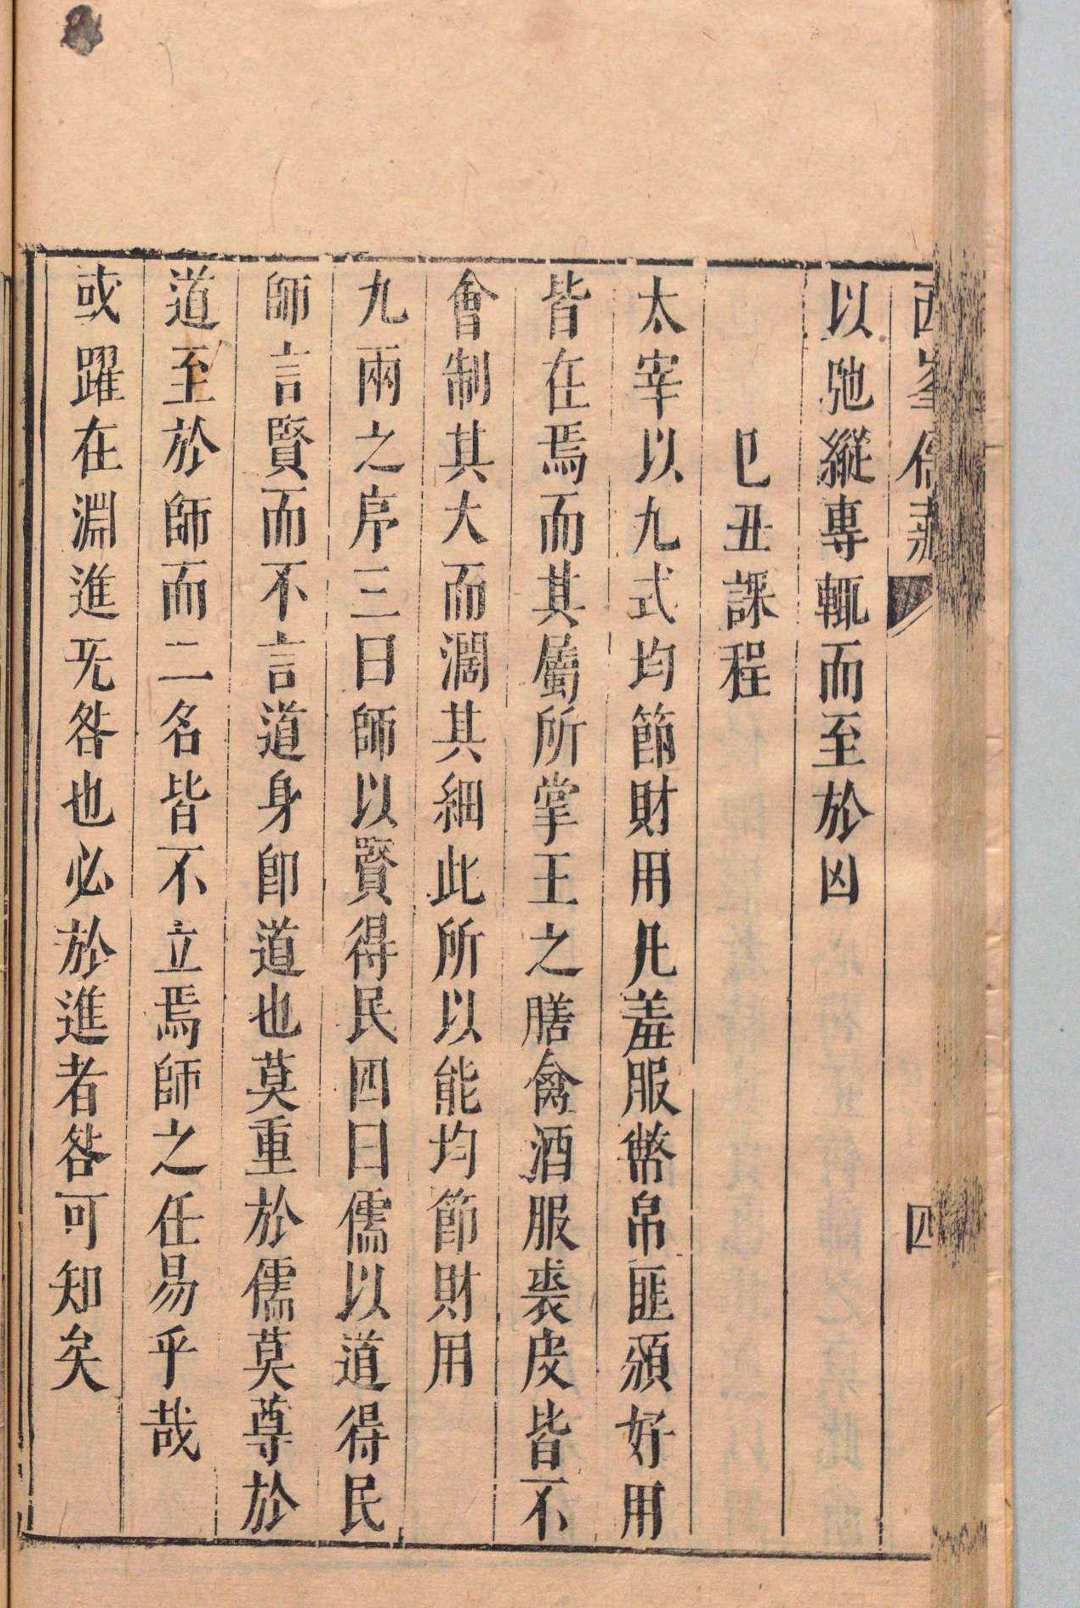 西峯儒藻
四
以弛縱專輒而至於凶
己丑課程
太宰以九式均節財用凡羞服幣帛匪頒好用
皆在焉而其屬所掌王之膳禽酒服裘皮皆不
會制其大而濶其細此所以能均節財用
九兩之序三曰師以賢得民四曰儒以道得民
師言賢而不言道身卽道也莫重於儒莫尊於
道至於師而二名皆不立焉師之任易乎哉
或躍在淵進旡咎也必於進者咎可知矣